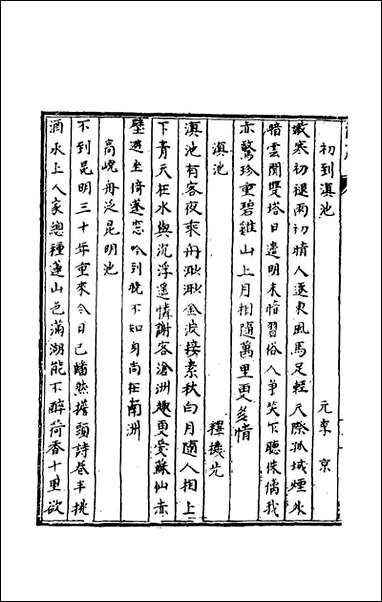 初到滇池　元李京
嫩寒初褪雨初晴人逐東風馬足輕天際孤城煙外
暗雲間雙塔日邊明未諳習俗人爭笑下聽侏儒我
亦驚珍重碧雞山上月相隨萬里更多情
滇池　釋機先
滇池有客夜乘舟渺渺金波接素秋白月隨人相上
下青天在水與沉浮遥憐謝客滄洲趣更愛蘇仙赤
壁遊坐倚蓬窓吟到曉不知身尚在南洲
高嶢舟泛昆明池
不到昆明三十年重來今日已皤然擔頭詩卷半挑
酒水上人家總種蓮山色滿湖能不醉荷香十里欲